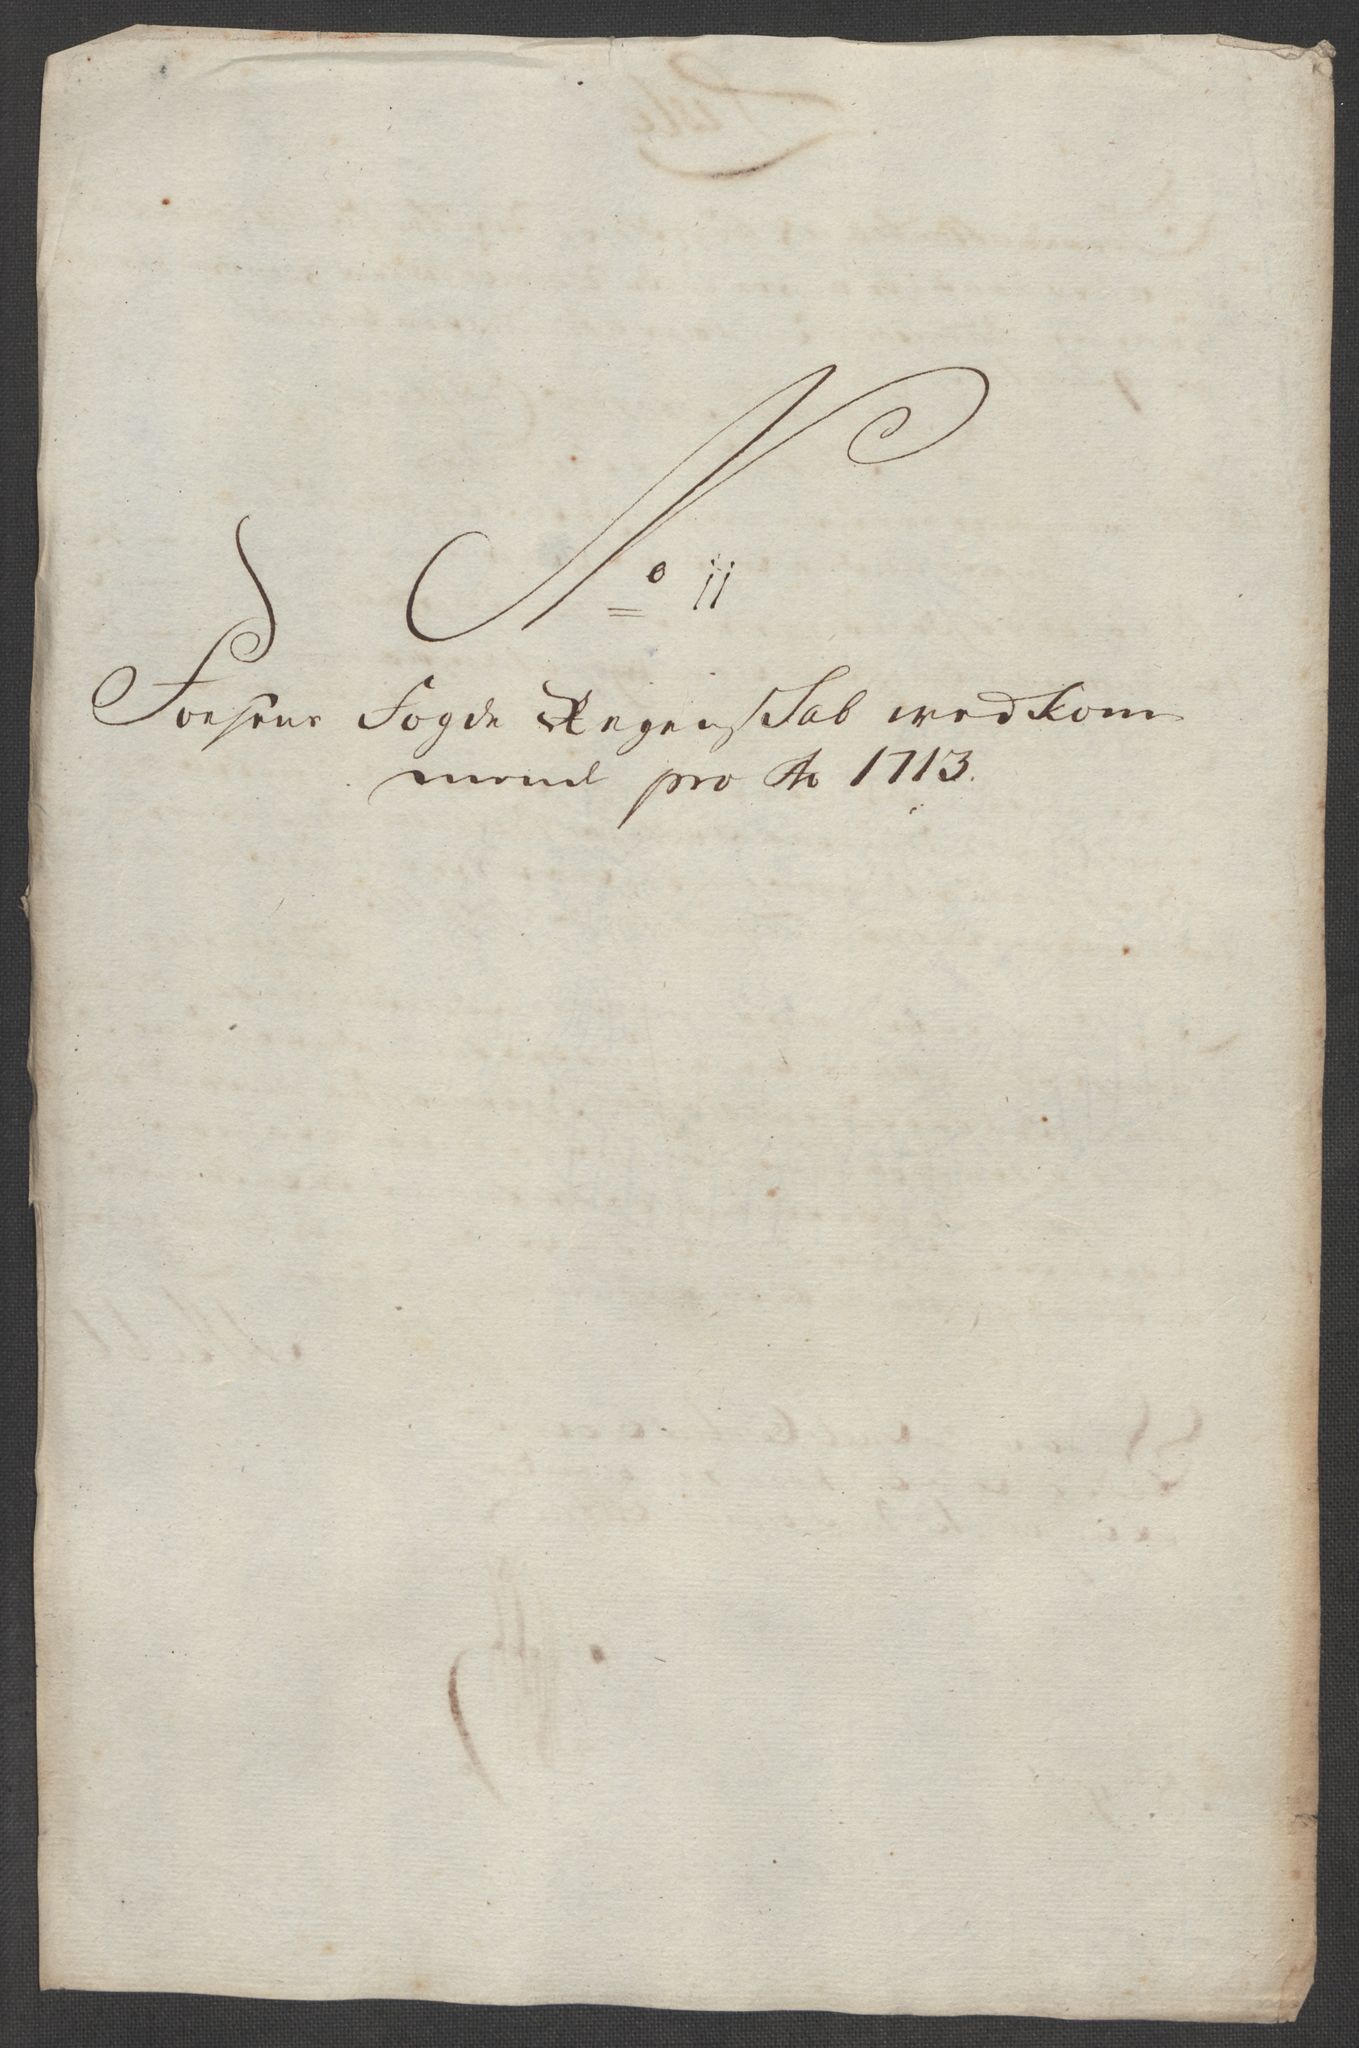 No 11
Foesens Fogde Regenskab wedkom
mend pro Ao 1713.